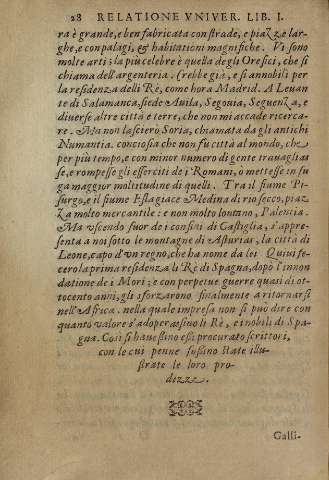 28 RELATIONE VNIVER. LIB. I.
ra è grande, e ben fabricata con strade, e piazze lar-
ghe, e con palagi, & habitationi magnifiche. Vi sono
molte arti; la più celebre è quella degli Orefici, che si
chiama dell'argenteria. Crebbe già, e si annobilì per
la residenza delli Rè, come hora Madrid. A Leuan
te di Salamanca, siede Auila, Segouia, Seguenza, e
diuerse altre città e terre, che non mi accade ricerca-
re. Ma non lasciero Soria, chiamata da gli antichi
Numantia. conciosia che non fu città al mondo, che
per più tempo, e con minor numero di gente trauaglias
se, e rompesse gli esserciti de i Romani, o mettesse in fu
ga maggior moltitudine di quelli. Tra il fiume Pi-
surgo, e il fiume Estagiac e Medina di rio secco, piaz
za molto mercantile: e non molto lontano, Palentia.
Ma vscendo fuor de i confini di Castiglia, s'appre-
senta a noi sotto le montagne di Asturias, la città di
Leone, capo d'vn regno, che ha nome da lei Quiui fe-
cero la prima residenza li Rè di Spagna, dopò l'innon
datione de i Mori; e con perpetue guerre quasi di ot-
tocento anni, gli sforzarono finalmente a ritornarsi
nell'Africa. nella quale impresa non si può dire con
quanto valore s'adoperassino li Rè, e i nobili di Spa-
gna. Così si hauessino essi procurato scrittori,
con le cui penne fussino state illu-
strate le loro pro-
dezze.
Galli-